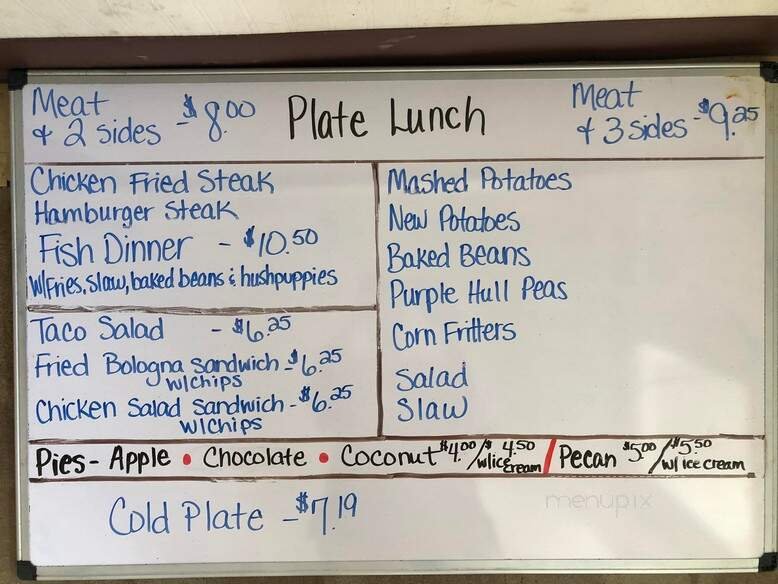 Meat
& 2 sides - $8.00
Plate Lunch
Meat
& 3 sides - $9.25
Chicken Fried Steak
Hamburger Steak
Fish Dinner - $10.50
w/Fries, slaw, baked beans & hushpuppies
Mashed Potatoes
New Potatoes
Baked Beans
Purple Hull Peas
Corn Fritters
Salad
Slaw
Taco Salad - $6.25
Fried Bologna Sandwich - $6.25
w/chips
Chicken Salad Sandwich - $6.25
w/chips
Pies - Apple • Chocolate • Coconut $4.00 / $4.50 w/ice cream / Pecan $5.00 / $5.50 w/ ice cream
Cold Plate - $7.19
menupix